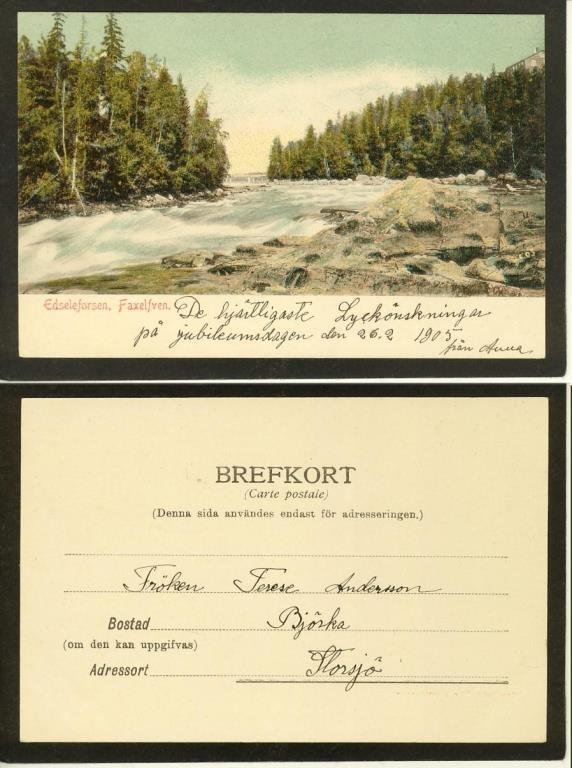 Edseleforsen, Faxelfven.
De hjärtligaste Lyckönskningar
på jubileumsdagen den 26.2 1905
från Anna
BREFKORT
(Carte postale)
(Denna sida användes endast för adresseringen.)
Fröken Terese Andersson
Bostad Björka
(om den kan uppgifvas)
Adressort Florsjö